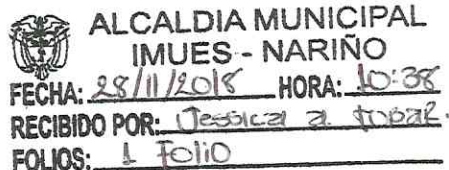 ALCALDIA MUNICIPAL
IMUES - NARIÑO
FECHA: 28/11/2018 HORA: 10:38
RECIBIDO POR: Jessica a topaz.
FOLIOS: 1 Folio